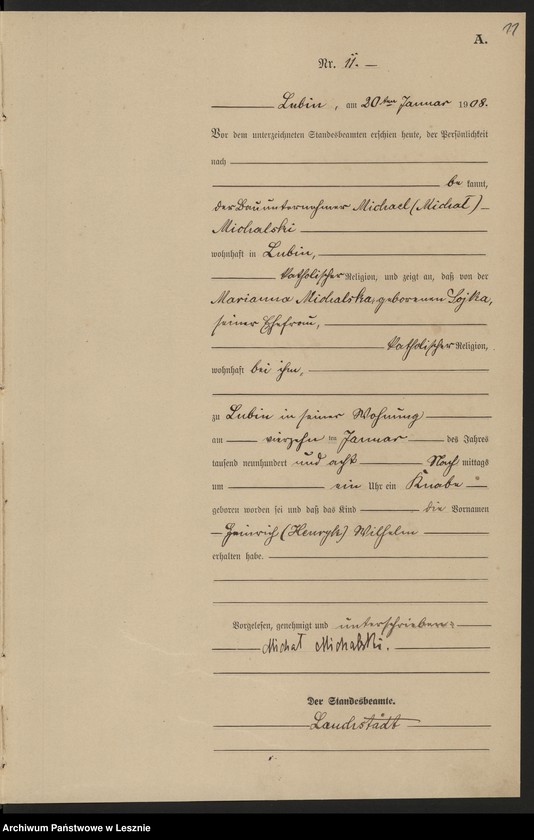 11
A.
Nr. 11.
Lubin, am 20ten Januar 1908.
Vor dem unterzeichneten Standesbeamten erschien heute, der Persönlichkeit
nach
be kannt,
der Bauunternehmer Michael (Michał)
Michalski
wohnhaft in Lubin,
katholischer Religion, und zeigt an, daß von der
Marianna Michalska, geborenen Sojka,
seiner Ehefrau,
katholischer Religion,
wohnhaft bei ihm,
zu Lubin in seiner Wohnung
am vierzehn ten Januar des Jahres
tausend neunhundert und acht Nach mittags
um ein Uhr ein Knabe
geboren worden sei und daß das Kind die Vornamen
Heinrich (Henryk) Wilhelm
erhalten habe.
Vorgelesen, genehmigt und unterschrieben
Michał Michalski.
Der Standesbeamte.
Archiwum Państwowe w Lesznie